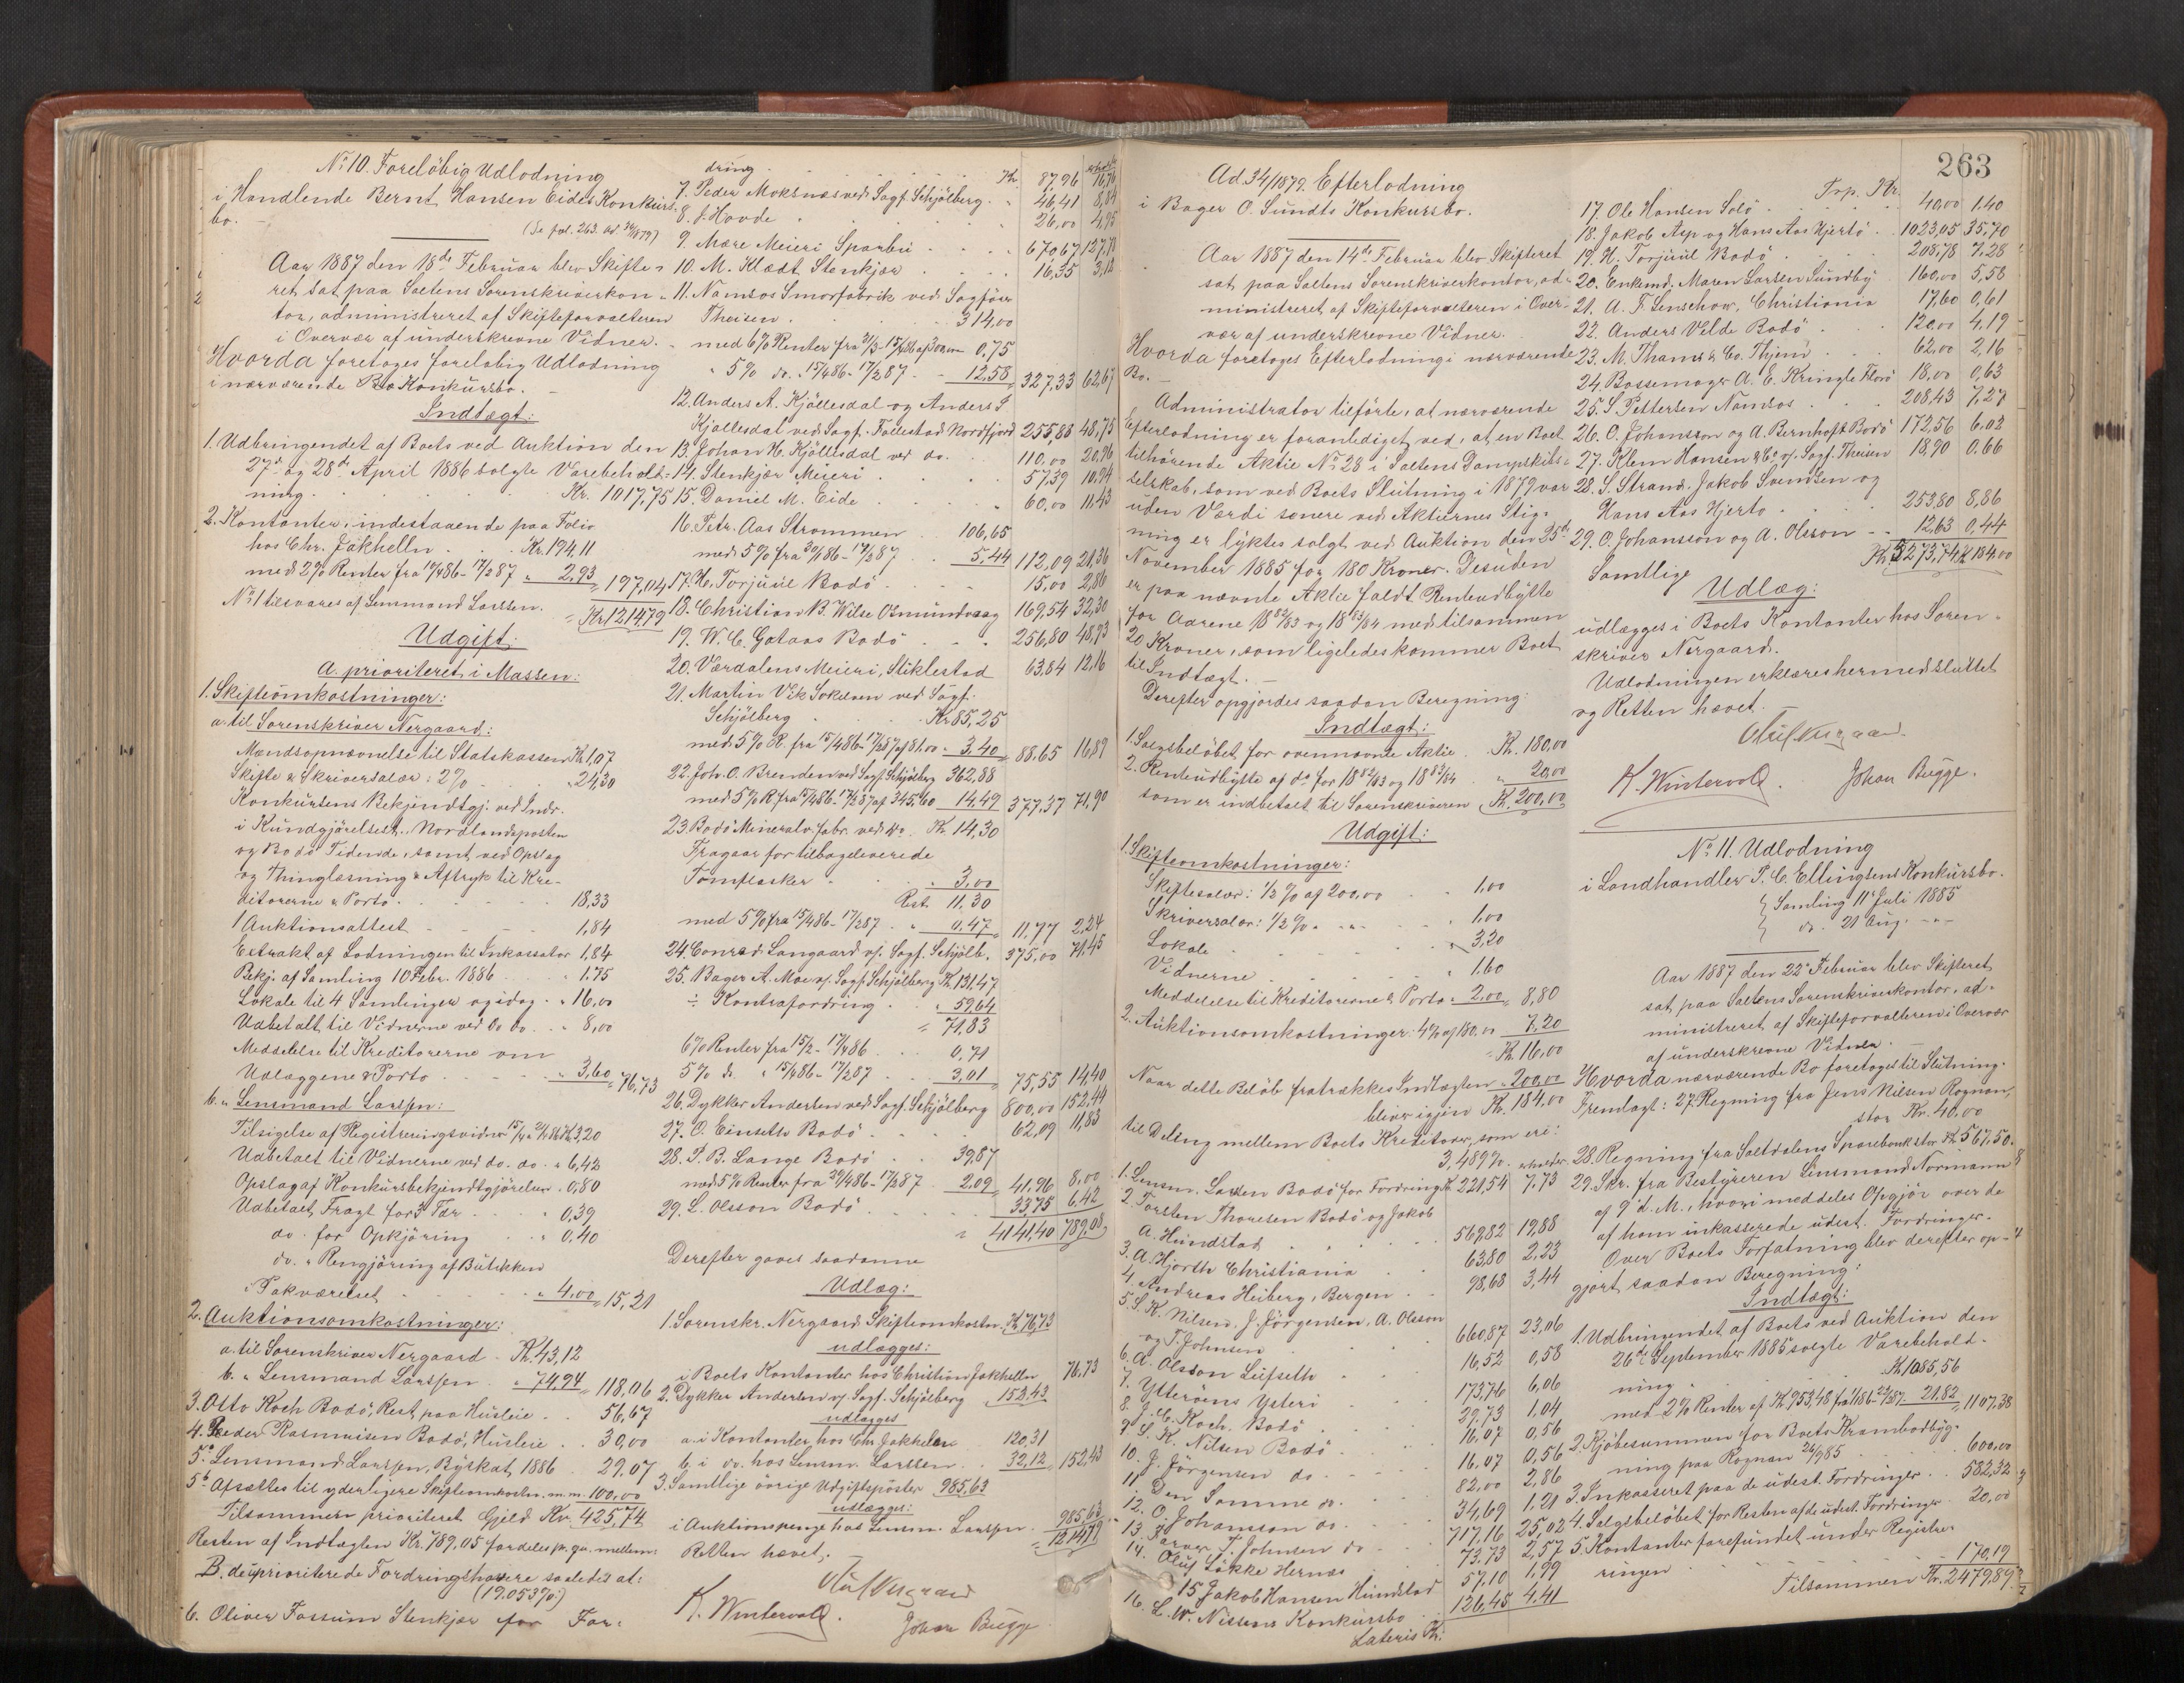 No 10. Foreløbig Udlodning
i Handlende Bernt Hansen Eides Konkurs-
bo. -
(Se fol. 263. Ad. 34/1879)
Aar 1887 den 18de Februar blev Skifte-
ret sat paa Saltens Sorenskriverkon-
tor, administreret af Skifteforvalteren
i Overvær af underskrevne Vidner. -
Hvorda foretoges foreløbig Udlodning
i nærværende Bo Konkursbo. -
Indtægt:
1. Udbringendet af Boets ved Auktion den
27de og 28de April 1886 solgte Varebehold-
ning . . . Kr. 1017,75
2. Kontanter, indestaaende paa Folio
hos Chr. Jakhelln . . Kr. 194,11
med 2% Renter fra 14/486 - 17/287 " 2,93 = 197,04
No 1 tilsvares af Lensmand Larssen. = Kr 1214,79
Udgift:
A. prioriteret i Massen:
1. Skifteomkostninger:
a. til Sorenskriver Nergaard:
Mandsopnævnelse til Statskassen Kr 1,07
Skifte & Skriversalær: 2% . " 24,30
Konkursens Bekjendtgj. ved Indr.
i Kundgjørelsest., Nordlandsposten
og Bodø Tidende, samt ved Opslag
og Thinglæsning & Aftryk til Kre-
ditorerne & Porto . . . 18,33
1 Auktionsattest . . . 1,84
Extrakt af Lodningen til Inkassator 1,84
Bekj. af Samling 10 Febr. 1886 . " 1,75
Lokale til 4 Samlinger og idag . " 16,00
Udbetalt til Vidnerne ved do do . " 8,00
Meddelelse til Kreditorerne om
Udlæggene & Porto . . . " 3,60 = 76,73
b. " Lensmand Larssen:
Tilsigelse af Registreringsvidner Kr 3,20
Udbetalt til Vidnerne ved do. do. " 6,42
Opslag af Konkursbekjendtgjørelsen . 0,80
Udbetalt Fragt for 3 Tdr . . " 0,39
do. for Opkjøring . . " 0,40
do. " Rengjøring af Butikken
" Pakværelset . . . " 4,00 = 15,21
2. Auktionsomkostninger:
a. til Sorenskriver Nergaard - Kr. 43,12
b. " Lensmand Larssen . " 74,94 = 118,06
3. Otto Koch Bodø, Rest paa Husleie . . 56,67
4. Peder Rasmusen Bodø, Husleie . . 30,00
5a Lensmand Larssen, Byskat 1886 . 29,07
5b Afsættes til yderligere Skifteomkostn. m.m. 100,00
Tilsammen prioriteret Gjeld Kr. 425,74
Resten af Indtægten Kr. 789,05 fordeles pr. qv. mellem
B. de uprioriterede Fordringshavere saaledes at:
(19.053%:)
6. Oliver Fossum Stenkjær for For-
dring . . . Kr. 87,96 erholder 16,76
7. Peder Moksnæs ved Sagf. Schjølberg . " 46,41 8,84
8. J. Hovde " . . . 26,00 4,95
9. Mære Meieri Sparbu . . . 670,67 127,78
10. M. Klædt Stenkjær . . . 16,35 3,12
11. Namsos Smørfabrik ved Sagfører
Theisen . . . 314,00
med 6% Renter 0,75
" 5% do. " 15/486 - 17/287 . - 12,58 = 327,33 62,67
12. Anders A. Kjøllesdal og Anders S
Kjøllesdal ved Sagf. Follestad Nordfjord 255,88 48,75
13. Johan H. Kjøllesdal ved do. . 110,00 20,96
14. Stenkjær Meieri . . . 57,39 10,94
15. Daniel M. Eide . . . " 60,00 11,43
16. Petr. Aas Strømmen . . 106,65
med 5% fra 30/86 - 17/287 . 5,44 112,09 21,36
17. H. Torjuul Bodø . . . 15,00 2,86
18. Christian B. Wilse Osmundvaag 169,54 32,30
19. W. C. Gotaas Bodø . . . 256,80 48,93
20. Værdalens Meieri, Stiklestad 63,84 12,16
21. Martin Vik Sokelven ved Sagf.
Schjølberg . . . Kr 85,25
med 5% R. fra 15/486 - 17/287 af 81.00 " 3.40 = 88.65 16,89
22. Joh. O. Brenden ved Sagf Schjølberg 362,88
med 5% R fra 15/486 - 17/287 af 345,60 14,49 = 377,37 71,90
23. Bodø Mineralv. fabr. ved do . Kr. 14,30
Fragaar for tilbageleverede
Tomflasker . . . " 3,00
Rest. 11,30
med 5% fra 15/486 - 17/287 . " 0,47 = 11,77 2,24
24. Conrad Langaard v/. Sagf. Schjølb. 375,00 71,45
25. Bager A. Moe v/. Sagf. Schjølberg Kr 131,47
÷ Kontrafordring . . " 59,64
= 71,83
6% Renter fra 15/2 - 17/486 . . . 0,71
5% do. " 15/486 - 17/287 . . 3,01 = 75,55 14,40
26. Dykker Andersen ved Sagf. Schjølberg 800,00 152,44
27. O. Einseth Bodø . . . 62,09 11,83
28. P. B. Lange Bodø . . 39,87
med 5% Renter fra 29/486 - 17/287 . 2,09 = 41,96 8,00
29. L. Olsson Bodø . . . 33,75 6,42
= 4141,40 789,08
Derefter gaves saadanne
Udlæg:
1. Sorenskr. Nergaard Skifteomkostn. Kr 76,73
udlægges:
i Boets Kontanter hos Christian Jakhelln 76,73
2. Dykker Andersen v/. Sagf. Schjølberg 152,43
udlægges
a. i Kontanter hos Chr. Jakhelln . 120,31
b. i do. hos Lensm. Larssen . . 32,12 = 152,43
3. Samtlige øvrige Udgiftsposter 985,63
udlægges:
i Auktionspenge hos Lensm. Larssen . 985,63
= 1214,79
Retten hævet. -
Oluf Nergaard
K. Wintervold. Johan Bugge
263
Ad. 34/1879. Efterlodning
i Bager O. Sundts Konkursbo.
Aar 1887 den 14de Februar blev Skifteret
sat paa Saltens Sorenskriverkontor, ad-
ministreret af Skifteforvalteren i Over-
vær af underskrevne Vidner. -
Hvorda foretoges Efterlodning i nærværende
Bo. -
Administrator tilførte, at nærværende
Efterlodning er foranlediget ved, at en Boet
tilhørende Aktie No 28 i Saltens Dampskibs-
selskab, som ved Boets Slutning i 1879 var
uden Værdi senere ved Aktiernes Stig-
ning er lyktes solgt ved Auktion den 25de
November 1885 for 180 Kroner. Desuden
er paa nævnte Aktie faldt Renteudbytte
for Aarene 1882/83 og 1883/84 med tilsammen
20 Kroner, som ligeledes kommer Boet
til Indtægt. -
Derefter opgjordes saadan Beregning:
Indtægt:
1. Salgsbeløbet for ovennævnte Aktie . Kr. 180,00
2. Renteudbytte af do for 1882/83 og 1883/84 " 20,00
som er indbetalt til Sorenskriveren Kr. 200,00
Udgift:
1. Skifteomkostninger:
Skiftesalær: 1/2 % af 200,00 . . 1,00
Skriversalær: 1/2 % " . . . 1,00
Lokale . . . " 3,20
Vidnerne . . . " 1,60
Meddelelse til Kreditorerne & Porto " 2,00 = 8,80
2. Auktionsomkostninger: 4% af 180,00 7,20
= Kr. 16,00
Naar dette Beløb fratrækkes Indtægten " 200,00
bliver igjen Kr. 184,00
til Deling mellem Boets Kreditorer, som er:
3,489%. erholder
1. Lensm. Larsen Bodø for Fordring Kr 221,54 7,73
2. Torsten Thoresen Bodø og Jakob
A. Hundstad . . . 569,82 19,88
3. A. Hjorth Christiania . . 63,80 2,23
4. Andreas Heiberg, Bergen . . 98,68 3,44
5. S. K. Nilsen, J. Jørgensen, A. Olsson
og T. Johnsen . . . 660,87 23,06
6. A. Olsson Leifseth . . . 16,52 0,58
7. Ytterøens Ysteri . . . 173,76 6,06
8. J. C. Koch. Bodø . . . 29,73 1,04
9. S. K. Nilsen Bodø . . . 16,07 0,56
10. J. Jørgensen do . . . 16.07 0,56
11. Den Samme do. . . . 82,00 2,86
12. O. Johansson do . . . 34,69 1,21
13. Farver T. Johnsen do . . 717,16 25,02
14. Oluf Løkke Hernæs . . 73.73 2,57
15 Jakob Hansen Hundstad 57,10 1,99
16. L. W. Nissens Konkursbo . 126,45 4,41
Lateris Kr.
Trp. Kr.
17. Ole Hansen Solø . . . 40,00 1,40
18. Jakob Asp og Hans Aas Hjertø . 1023,05 35,70
19. H. Torjuul Bodø . . . 208,78 7,28
20. Enkemd. Maren Larsen Sundby . 160,00 5,58
21. A. F. Lenschow, Christiania 17,60 0,61
22. Anders Velde Bodø . . . 120,00 4,19
23. M. Thams & Co. Thjem . . . 62,00 2,16
24. Bossemager A. E. Kringle Florø 18,00 0,63
25. S. Pettersen Namsos . . . 208,43 7,27
26. O. Johansson og A. Bernhoft Bodø 172,56 6,02
27. Klem Hansen & Co v/. Sagf. Theisen 18,90 0.66
28. S. Strand, Jakob Svendsen og
Hans Aas Hjertø . . . 253,80 8,86
29. O. Johansson og A. Olsson - - 12,63 0,44
Kr. 5273,74 Kr. 184.00
Samtlige
Udlæg:
udlægges i Boets Kontanter hos Soren-
skriver Nergaard.
Udlodningen erklæres hermed sluttet
og Retten hævet.
Oluf Nergaard
K. Wintervold. Johan Bugge.
No 11. Udlodning
i Landhandler P. C. Ellingsens Konkursbo.
Samling 11 Juli 1885
do. 21 Aug. -"-
Aar 1887 den 22de Februar blev Skifteret
sat paa Saltens Sorenskriverkontor, ad-
ministreret af Skifteforvalteren i Overvær
af underskrevne Vidner. -
Hvorda nærværende Bo foretoges til Slutning.
Fremlagt: 27. Regning fra Jens Nilsen Rognan,
stor Kr. 40,00
28. Regning fra Saltdalens Sparebank stor Kr 567,50.
29. Skr. fra Bestyreren Lensmand Normann
af 9 d. M., hvori meddeles Opgjør over de
af ham inkasserede udest. Fordringer.
Over Boets Forfatning blev derefter op-
gjort saadan Beregning:
Indtægt:
1. Udbringendet af Boets ved Auktion den
26de September 1885 solgte Varebehold-
ning . . . Kr 1085,56
med 2% Renter af Kr 953,48 21,82 = 1107.38
2. Kjøbesummen for Boets Krambodbyg-
ning paa Rognan 26/985 . . 600,00
3. Inkasseret paa de udest. Fordringer . . 582,32
4. Salgsbeløbet for Resten af de udest. Fordringer . 20,00
5. Kontanter forefundet under Registre-
ringen . . . 170,19
Tilsammen Kr. 2479,89